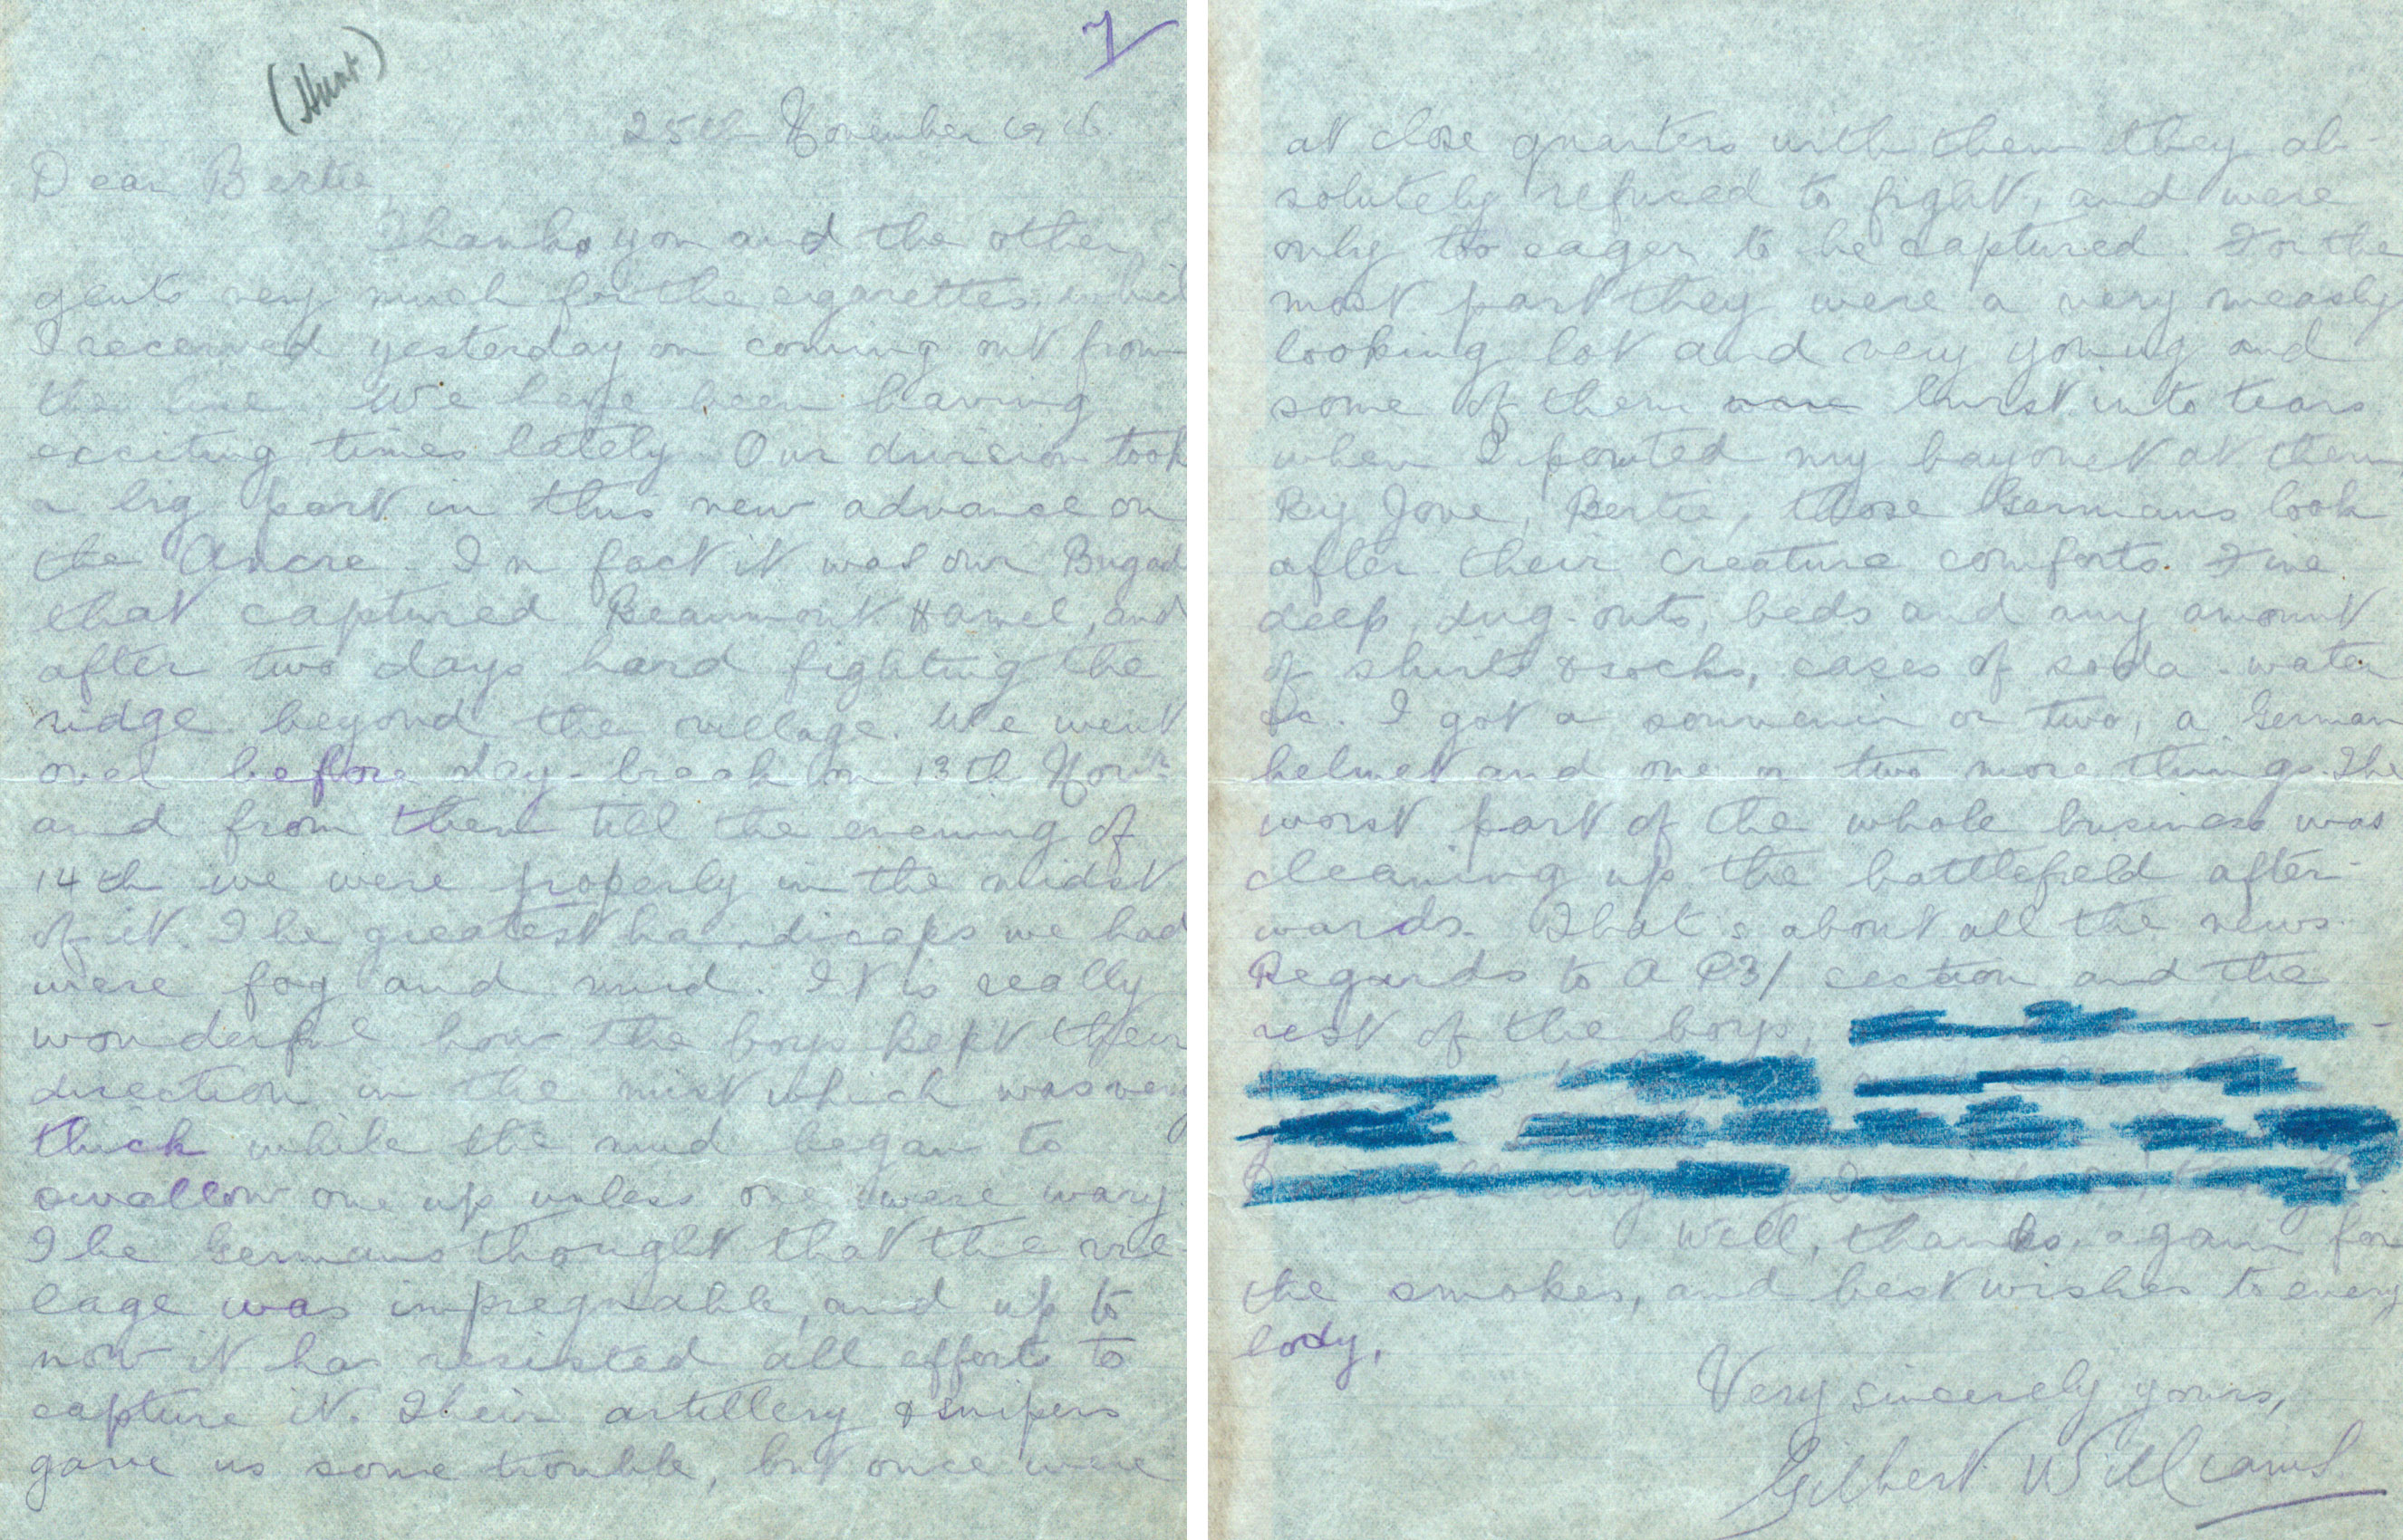 (Hunt)
25th November 1916.
Dear Bertie,
Thanks you and the other
gents very much for the cigarettes which
I received yesterday on coming out from
the line. We have been having
exciting times lately. Our division took
a big part in this new advance on
the Ancre. In fact it was our Brigade
that captured Beaumont Hamel, and
after two days hard fighting the
ridge beyond the village. We went
over before day-break on 13th Novr
and from then till the evening of
14th we were properly in the midst
of it. The greatest handicaps we had
were fog and mud. It is really
wonderful how the boys kept their
direction in the mist which was very
thick while the mud began to
swallow one up unless one were wary.
The Germans thought that the vil-
lage was impregnable, and up to
now it has resisted all efforts to
capture it. Their artillery & snipers
gave us some trouble, but once were
at close quarters with them they ab-
solutely refused to fight, and were
only too eager to be captured. For the
most part they were a very measly
looking lot and very young and
some of them burst into tears
when I pointed my bayonet at them
By Jove, Bertie, those Germans look
after their creature comforts. Fine
deep dug-outs, beds and any amount
of shirts & socks, cases of soda-water
&c. I got a souvenir or two, a German
helmet and one or two more things. The
worst part of the whole business was
cleaning up the battlefield after-
wards. That's about all the news.
Regards to A P3/ section and the
rest of the boys,
Well, thanks again for
the smokes, and best wishes to every
body,
Very sincerely yours,
Gilbert Williams